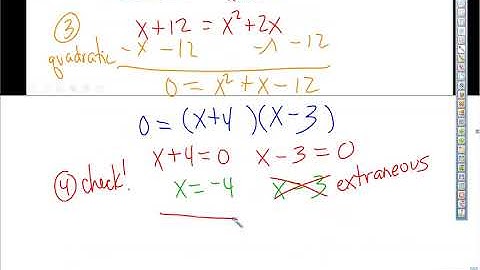 ③ x+12 = x²+2x
quadratic -x -12 -x -12
0 = x²+x-12
0=(x+4 )(x-3)
x+4=0 x-3=0
④ check! x=-4 x=3 extraneous